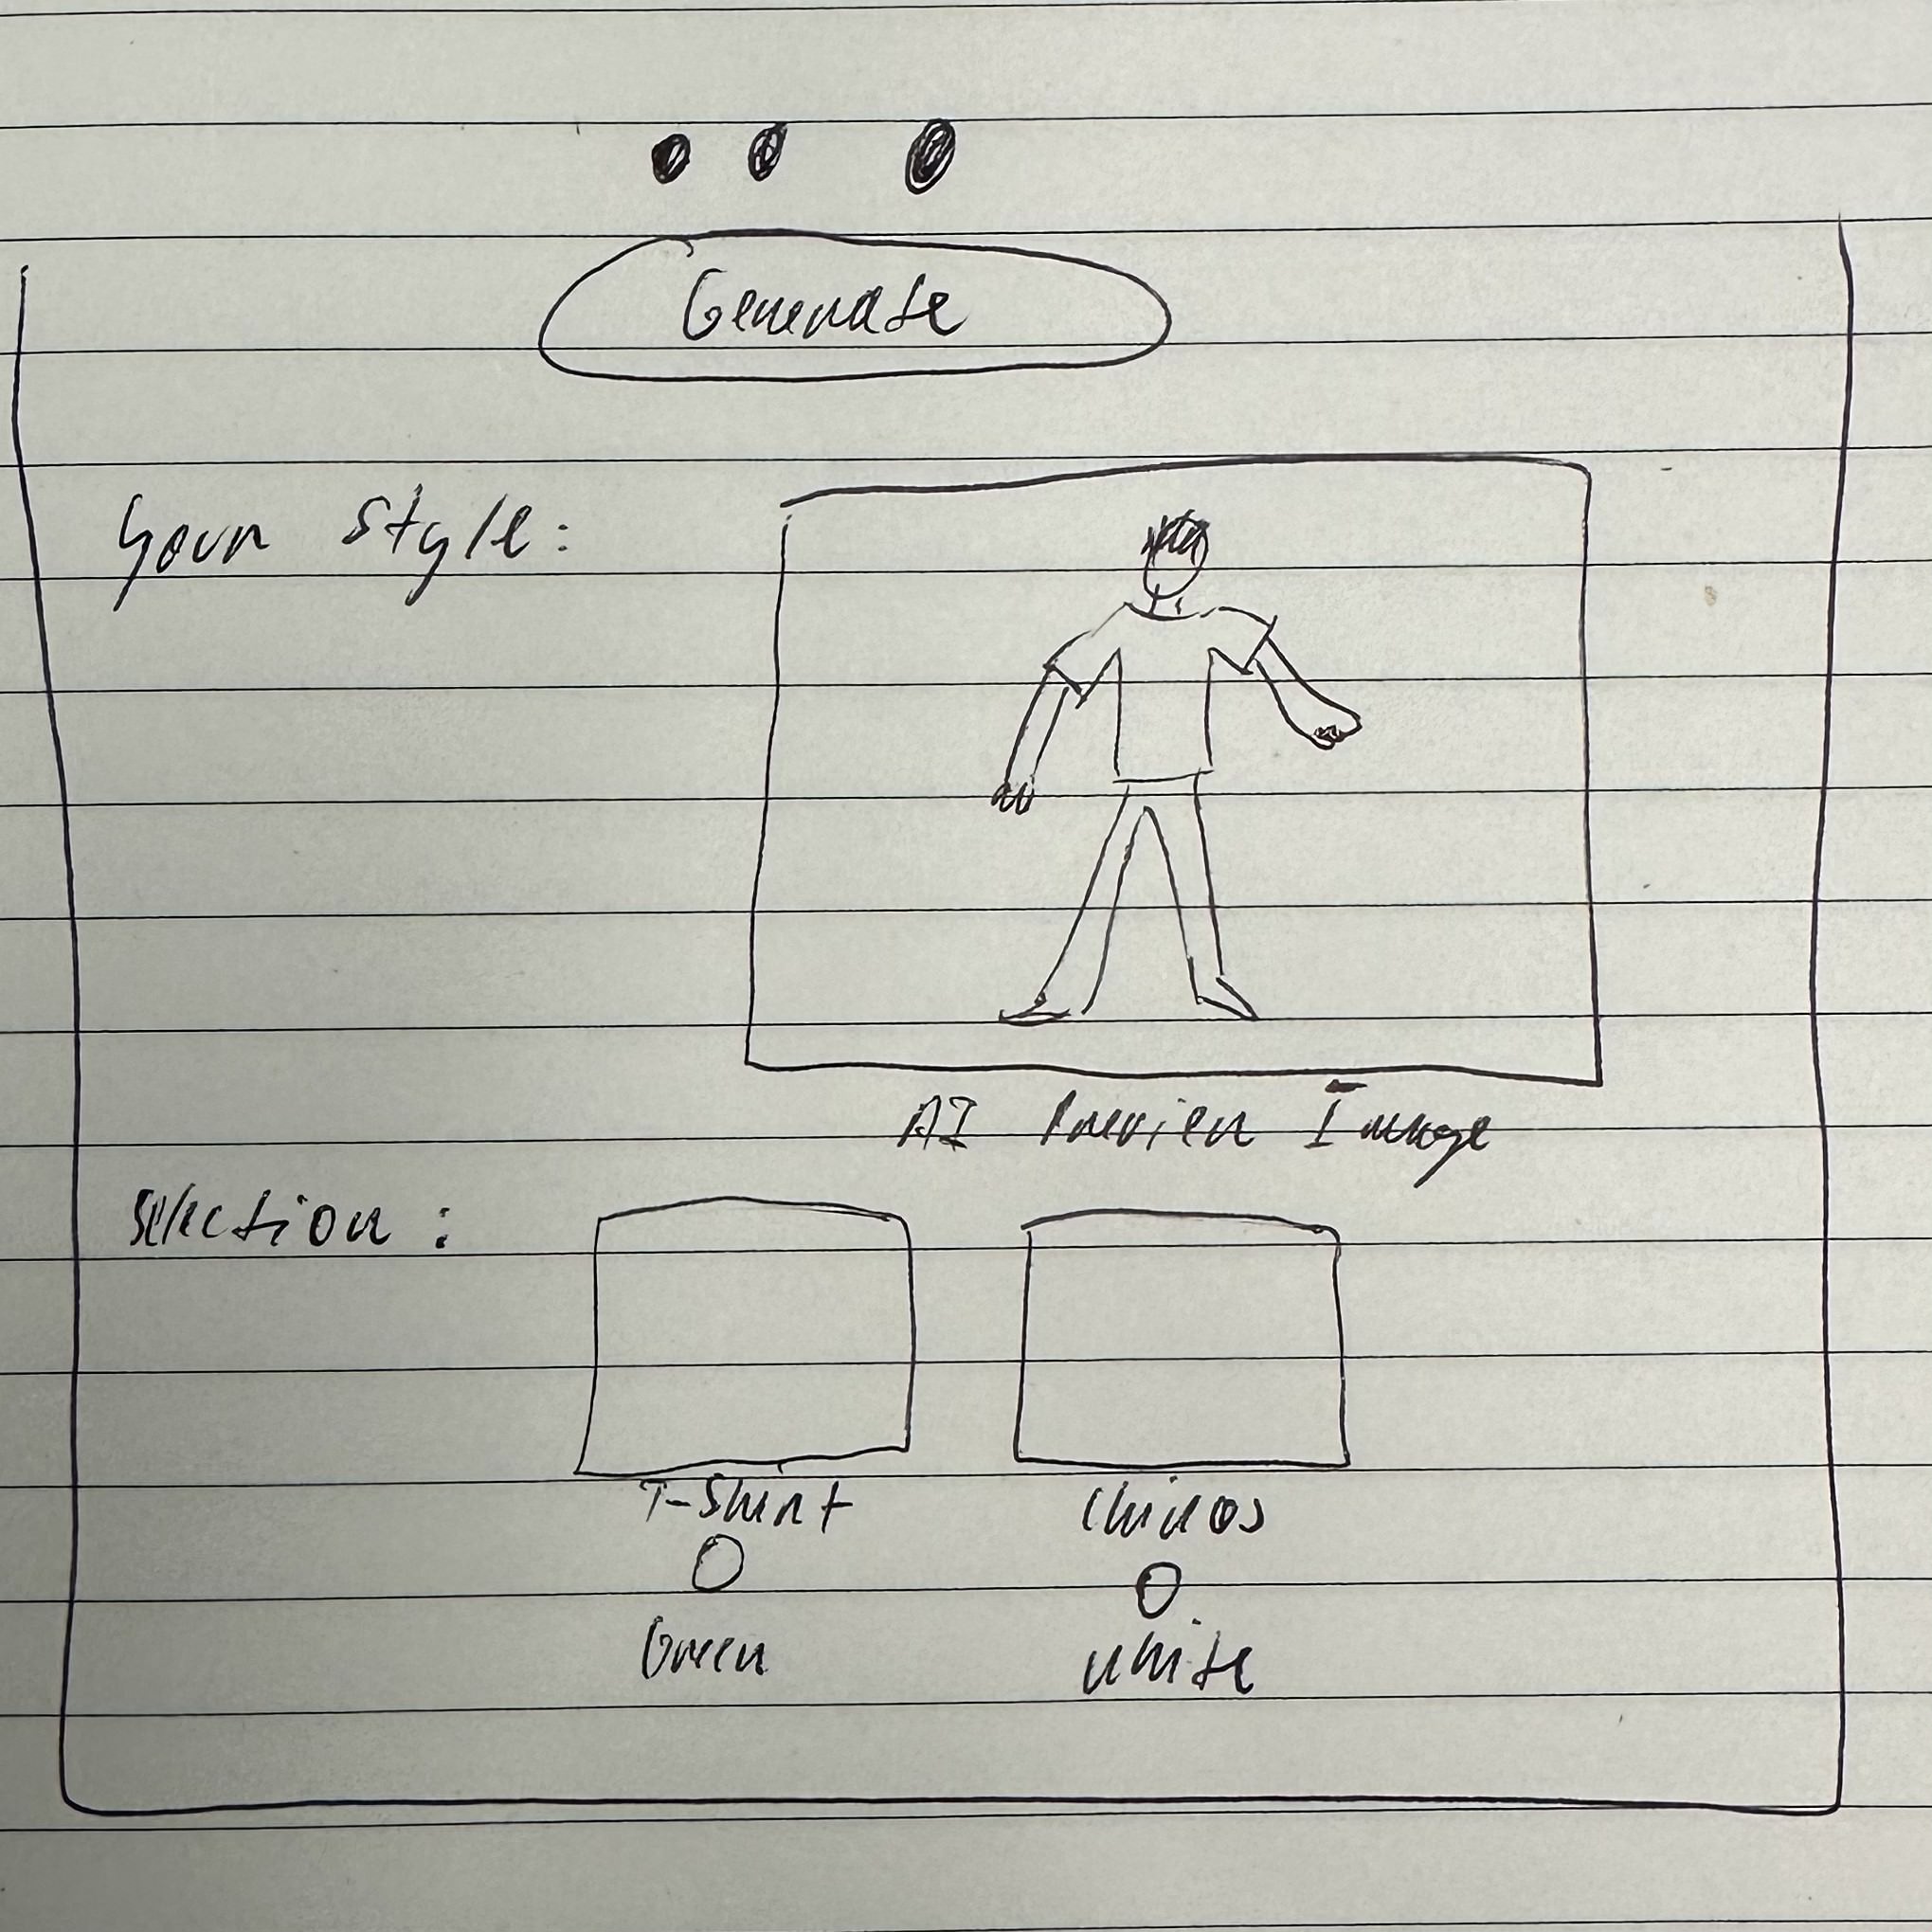 Generate
Your Style:
AI Preview Image
Selection:
T-Shirt
Chinos
Green
White